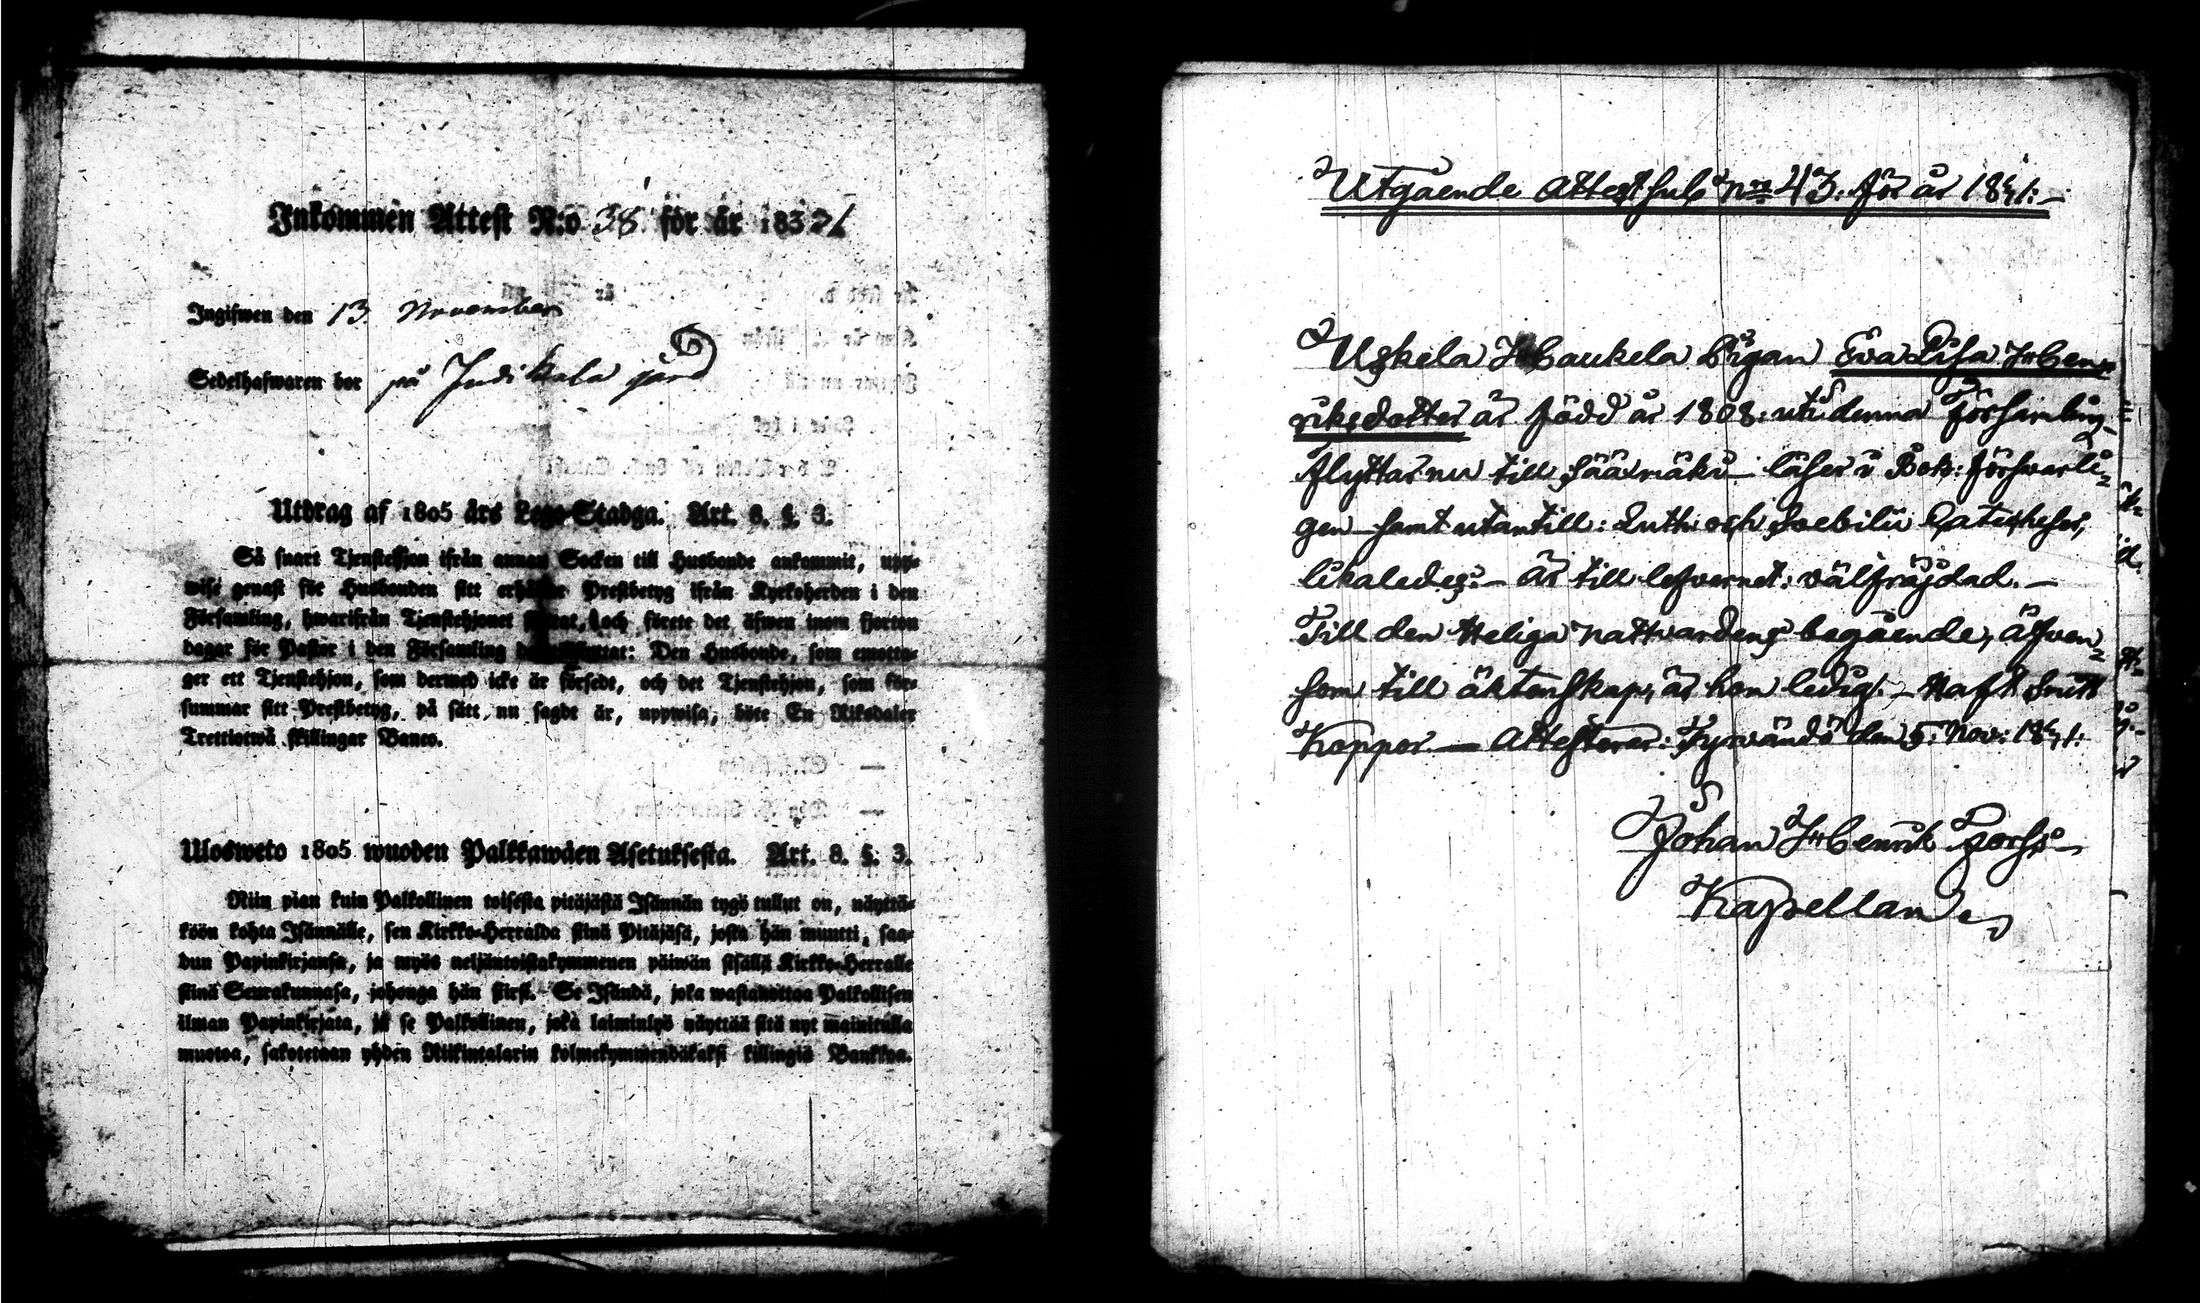 Inkommen Attest N:o 38 för år 183
Ingifwen den 13. November
Sedelhafwaren bor på Indikala gård
Utdrag af 1805 års Lego-Stadga. Art. 8. §. 3.
Så snart Tjenstehjon ifrån annan Socken till Husbonde ankommit, upp-
wise genast för Husbonden sitt erhållne Prestbetyg ifrån Kyrkoherden i den
Församling, hwarifrån Tjenstehjonet och förete det äfwen inom fjorton
dagar för Pastor i den Församling Den Husbonde, som emotta-
ger ett Tjenstehjon, som dermed icke är försedt, och det Tjenstehjon, som för-
summar sitt Prestbetyg, på sätt nu sagdt är, uppwisa, böte En Riksdaler
Trettiotwå skillingar Banco.
Ulosweto 1805 wuoden Palkkawäen Asetuksesta. Art. 8. §. 3.
Niin pian kuin Palkollinen toisesta pitäjästä Isännän tygö tullut on, näyttä-
köön kohta Isännälle, sen Kirkko-Herralda siinä Pitäjäsä, josta hän muutti, saa-
dun Papinkirjansa, ja myös neljäntoistakymmenen päiwän sisällä Kirkko-Herralle
siinä Seurakunnasa, johonga hän siirsi. Se Isändä, joka wastanottaa Palkollisen
ilman Papinkirjata, ja se Palkollinen, joka laiminlyö näyttää sitä nyt mainitulla
muotoa, sakotetaan yhden Riikintalarin kolmekymmendäkaksi killingiä Bankkoa.
Utgående Attest sub Nro 43. för år 1841.
Uskela Haukela Pigan Eva Lisa Hen-
riksdotter är född år 1808: uti denna Församling
flyttar nu till Säärmäki läser i Bok: försvarli-
gen samt utantill: Luth: och Svebilii Catecheser,
likaledes. Är till lefvernet: välfräjdad. —
Till den Heliga Nattvardens begående, äfven-
som till äktenskap, är hon ledig. Haft
Koppor. — Attesterar: Tyrvändö den 5: Nov: 1841:
Johan Henrik Forss
Kapellan